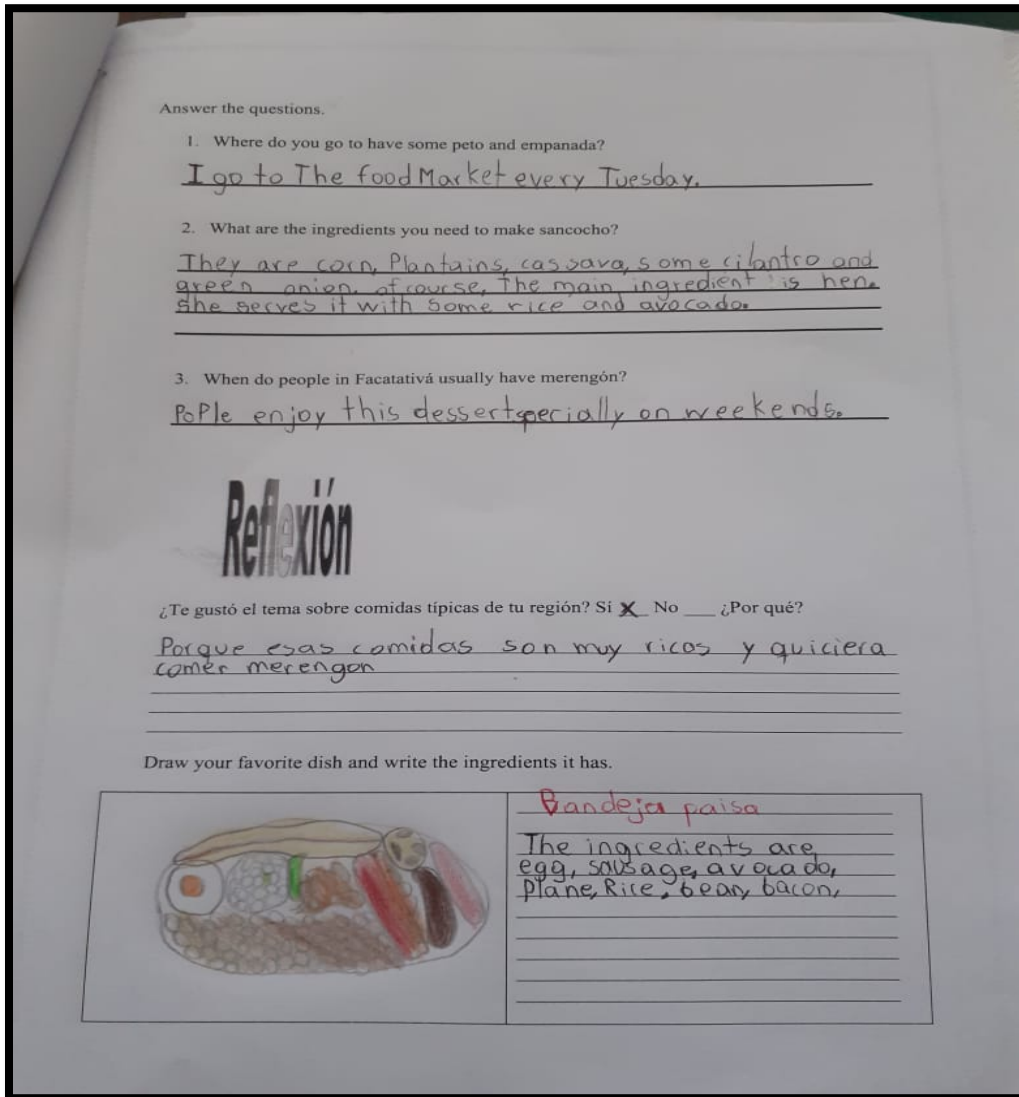 Answer the questions.
1. Where do you go to have some peto and empanada?
I go to The food Market every Tuesday.
2. What are the ingredients you need to make sancocho?
They are corn, Plantains, cassava, some cilantro and
green onion. of course, The main ingredient is hen.
She serves it with some rice and avocado.
3. When do people in Facatativá usually have merengón?
PoPle enjoy this dessert specially on weekends.
Reflexión
¿Te gustó el tema sobre comidas típicas de tu región? Si X No ____ ¿Por qué?
Porque esas comidas son muy ricos y quiciera
comer merengon
Draw your favorite dish and write the ingredients it has.
Bandeja paisa
The ingredients are,
egg, sausage, avocado,
Plane, Rice, bean, bacon,